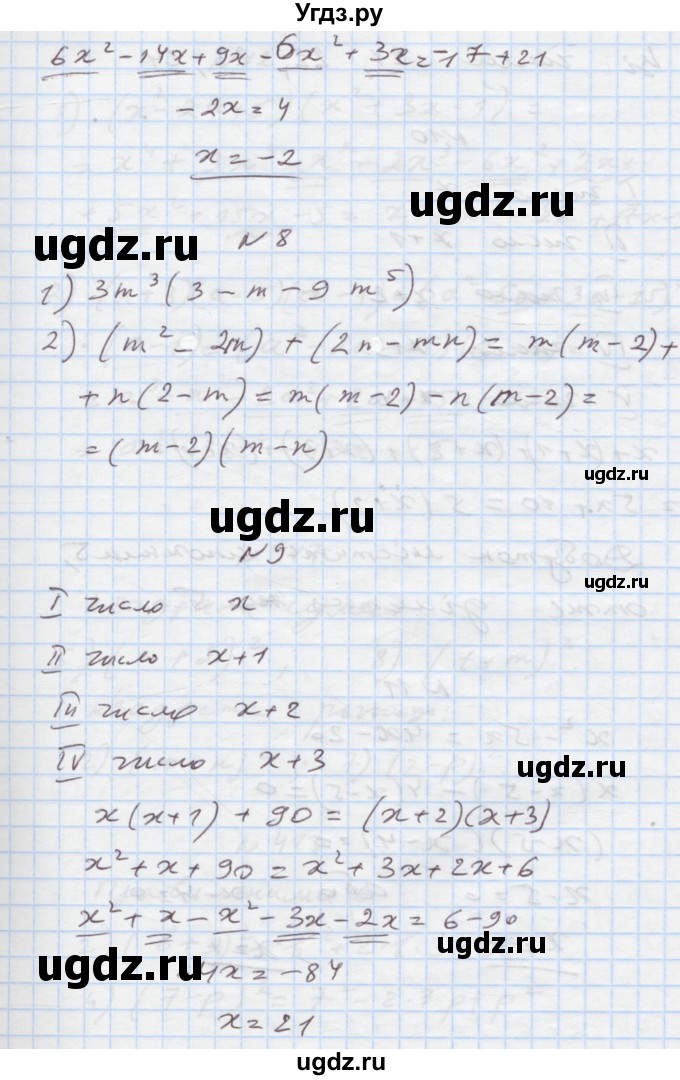 Угдз.ру
6x² - 14x + 9x - 6x² + 3x = -17 + 21
-2x = 4
x = -2
ugdz.ru
ugdz.ru
№ 8
1) 3m³(3 - m - 9m⁵)
2) (m² - 2m) + (2n - mn) = m(m-2) +
+ n(2-m) = m(m-2) - n(m-2) =
= (m-2)(m-n)
ugdz.ru
ugdz.ru
№ 9
ugdz.ru
I число x
II число x+1
III число x+2
IV число x+3
ugdz.ru
x(x+1) + 90 = (x+2)(x+3)
x² + x + 90 = x² + 3x + 2x + 6
x² + x - x² - 3x - 2x = 6 - 90
ugdz.ru
ugdz.ru
4x = -84
x = 21
ugdz.ru